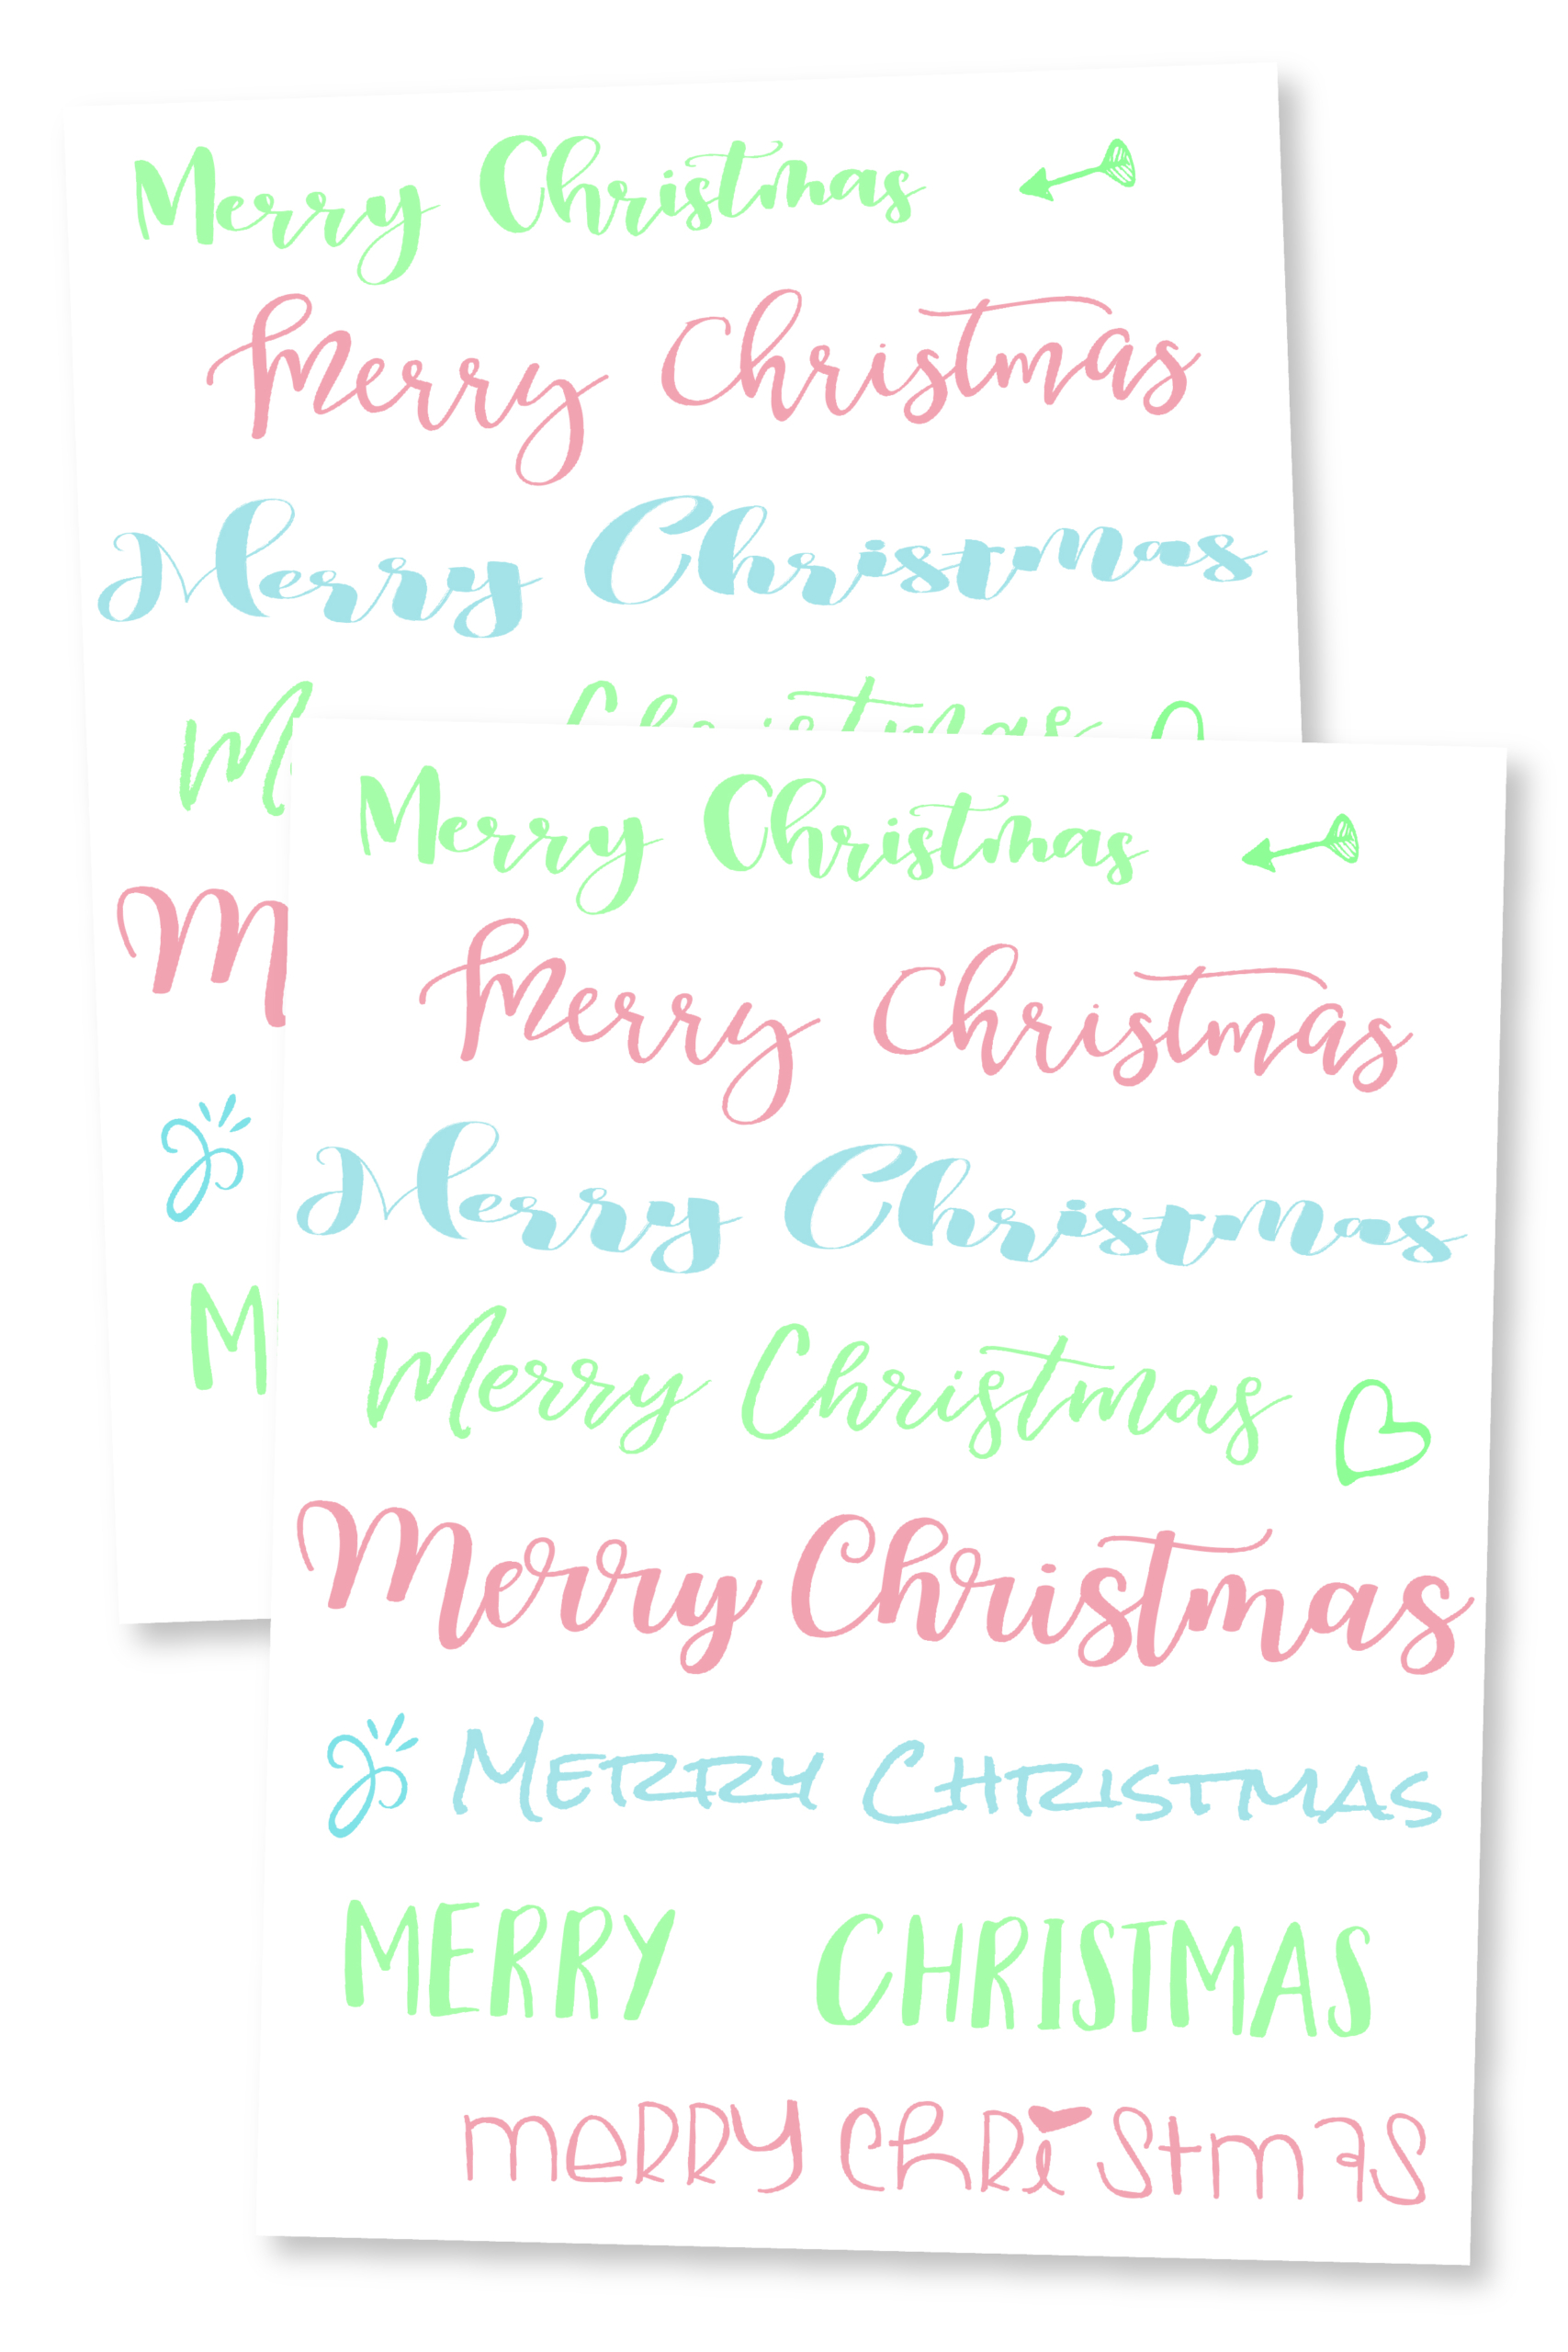 Merry Christmas
Merry Christmas
Merry Christmas
M Christmas
M
M
Merry Christmas
Merry Christmas
Merry Christmas
Merry Christmas
Merry Christmas
MERRY CHRISTMAS
MERRY CHRISTMAS
meRRY ChRistmas